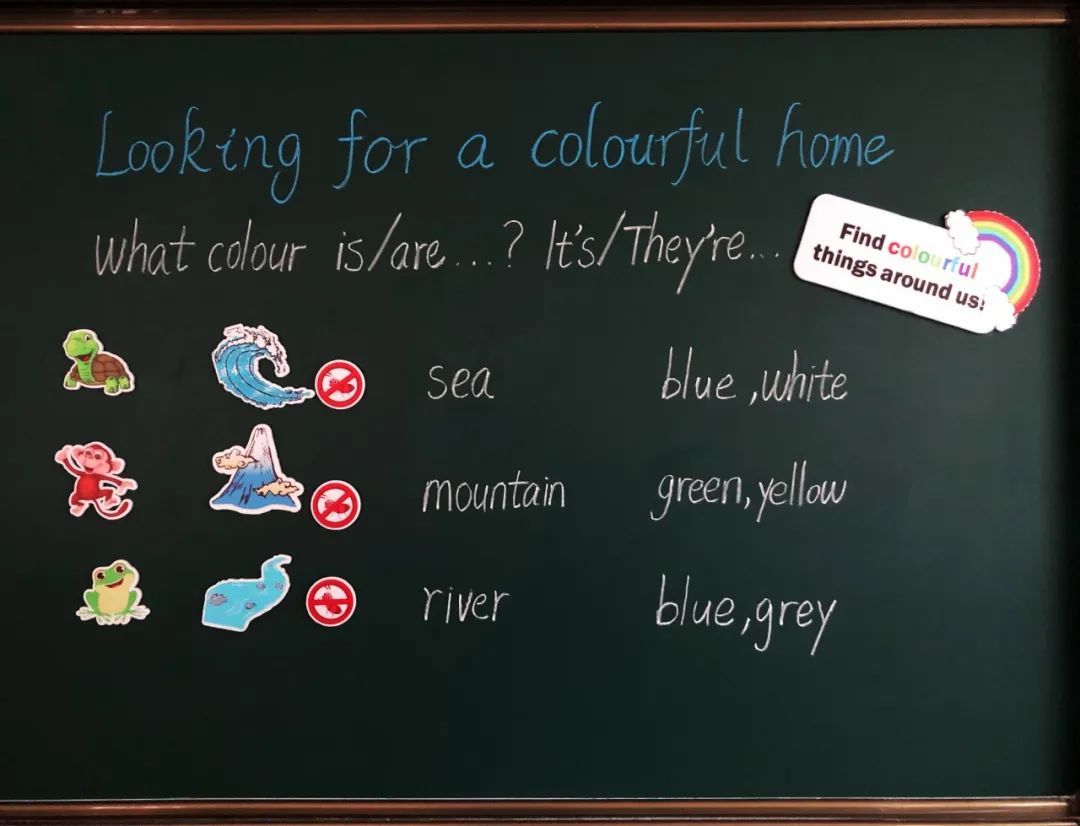 Looking for a colourful home
What colour is/are...? It's/They're...
Find colourful
things around us!
sea blue,white
mountain green,yellow
river blue,grey